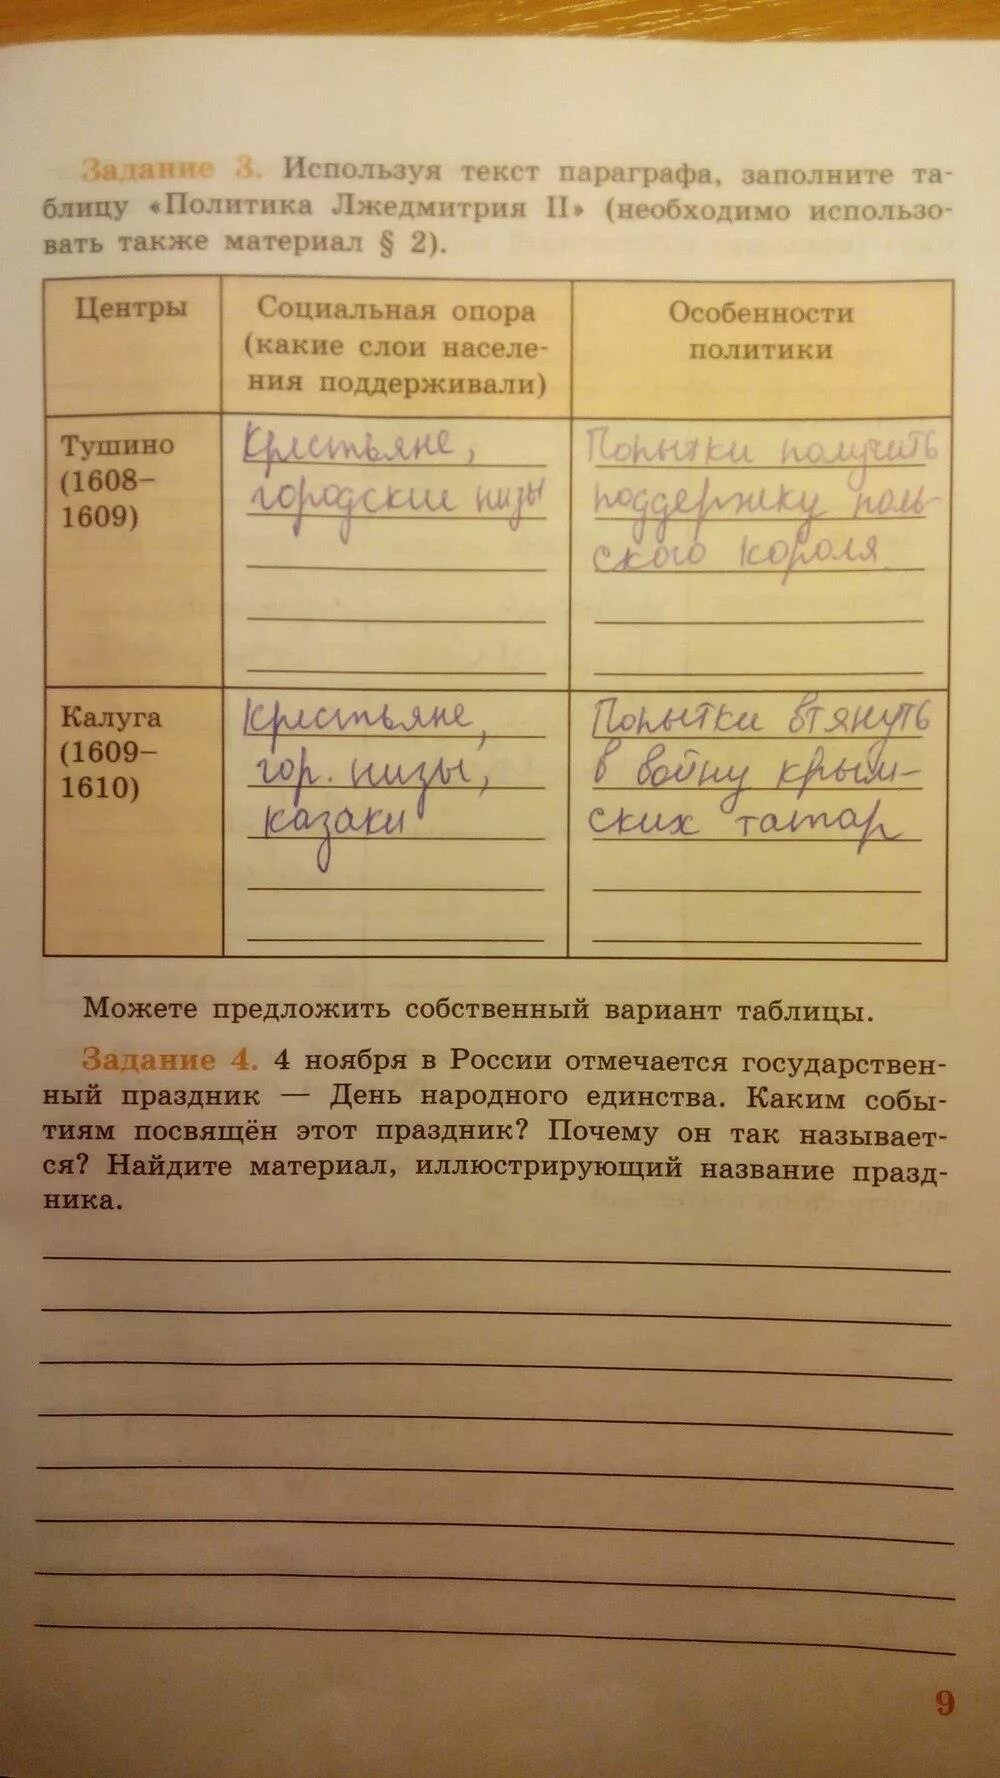 Задание 3. Используя текст параграфа, заполните та-
блицу «Политика Лжедмитрия II» (необходимо использо-
вать также материал § 2).
Центры
Социальная опора
(какие слои населе-
ния поддерживали)
Особенности
политики
Тушино
(1608–
1609)
Крестьяне,
городские низы
Попытки получить
поддержку поль-
ского короля
Калуга
(1609–
1610)
Крестьяне,
гор. низы,
казаки
Попытки втянуть
в войну крым-
ских татар
Можете предложить собственный вариант таблицы.
Задание 4. 4 ноября в России отмечается государствен-
ный праздник — День народного единства. Каким собы-
тиям посвящён этот праздник? Почему он так называет-
ся? Найдите материал, иллюстрирующий название празд-
ника.
9